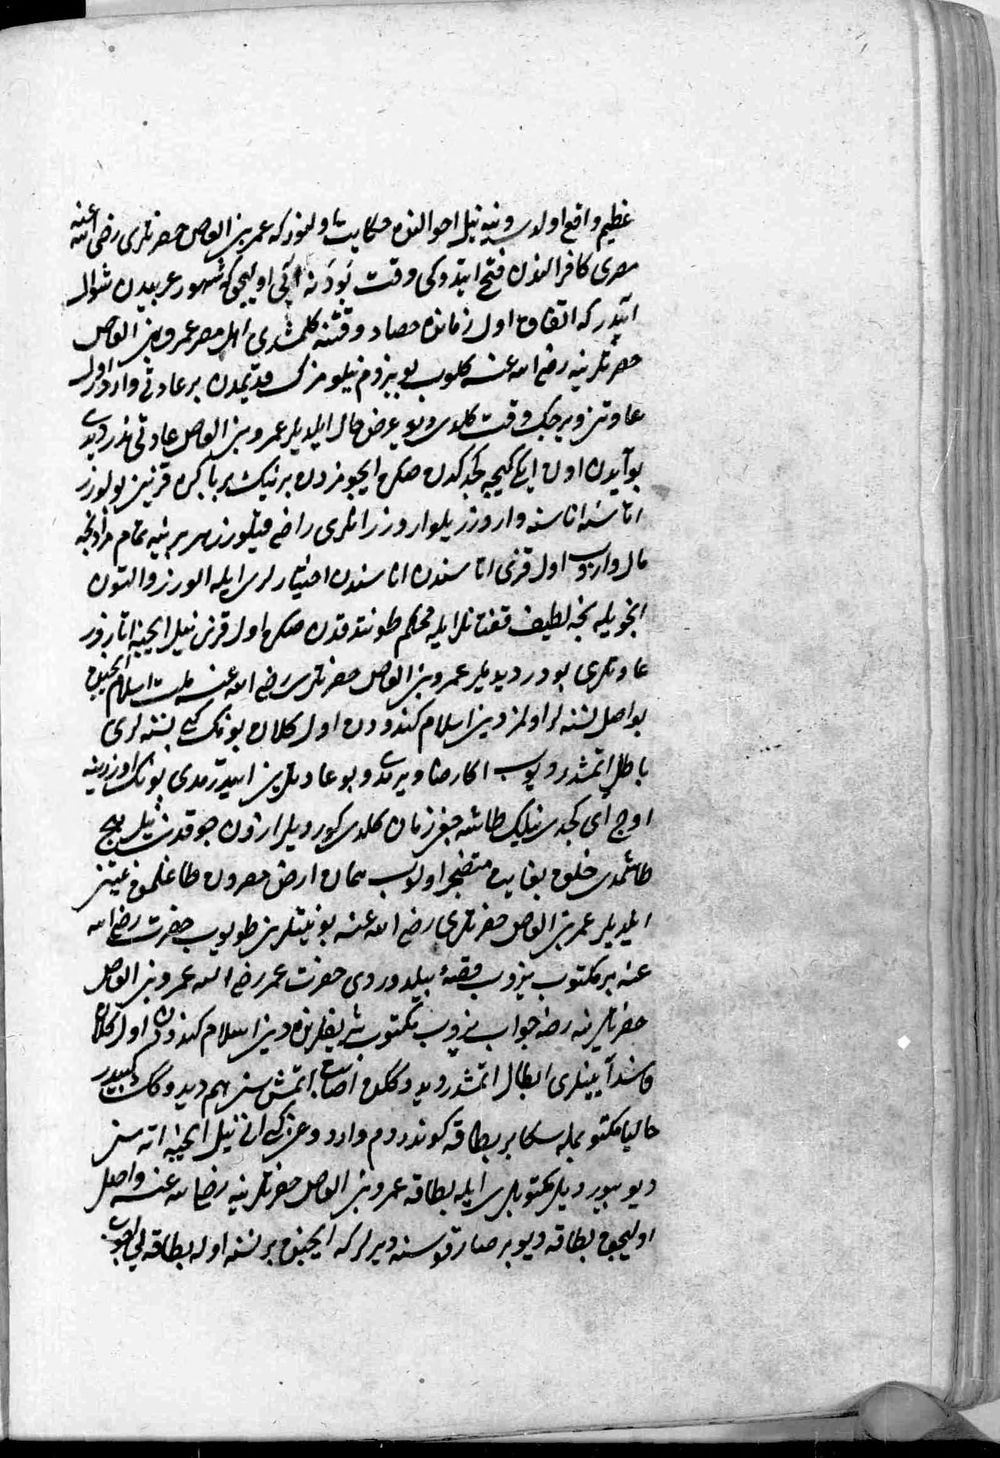 عظیم واقع اولدی ونیه نیل احوالنده حکایت اولنور که عمر بن العاص حضرتلری رضی الله عنه
مصری کافر النده فتح ایتدوکی وقت بودنه آیی اولیجق که شهور عربیدن شوال
آیدر که اتفاق اول زمانده حصاد وقتنه کلمشدی اهل مصر عمرو بن العاص
حضرتلرینه رضی الله عنه کلوب یوبیزم نیلومزک قدیمدن بر عادتی واردر اول
عادتن ویرجک وقت کلدی دیو عرض حال ایلدیلر عمرو بن العاص عادتی نه در دیدی
بو آیدن اون ایکی کیجه کجدکدن صکره ایچومزدن بر نیک بر باکره قزین بولورز
اناسنه اتاسنه واروز یلواروز انلری راضی قیلورز هر برینه تمام مرادنجه
مال واروب اول قزی اتاسندن اناسندن اختیارلری ایله الورز والتون
انجو یله نجه لطیف قفتانلر ایله محکم طوناتدقدن صکره اول قزی نیل ایچینه اتارز
عادتلری بودر دیدیلر عمرو بن العاص حضرتلری رضی الله عنه ملت اسلام ایچنده
بو اصل نسنه لر اولمز دین اسلام کندودن اول کلان بونک کبی نسنه لری
باطل اتمشدر دیوب اکا رضا ویرمدی و بو عادتلرین ایتدرمدی بونک اوزرینه
اوج ای کجدی نیلک طاشه جغی زمان کلدی کوردیلر ازدن جوقدن نیل هیچ
طاشمدی خلق بغایت متضجر اولوب همان ارض مصردن طاغلمق نیتن
ایلدیلر عمر بن العاص حضرتلری رضی الله عنه بو نیتلرین طویوب حضرت رضی الله
عنه بر مکتوب یزوب قصه بیلدوردی حضرت عمر رضی الله عمرو بن العاص
حضرتلرینه رضه جواب یزوب مکتوب شریفلرنده دین اسلام کندودن اول کلان
فاسد آیینلری ابطال اتمشدر دیدوکک اصابت اتمشسن هم دیدوکک کبیدر
حالیا مکتوبمله سکا بر بطاقه کوندردم واردوغی کبی انی نیل ایچینه اته سن
دیو بیوردیلر مکتوبلری ایله بطاقه عمرو بن العاص حضرتلرینه رضی الله عنه واصل
اولیجق بطاقه دیو بر صارقوسنه دیرلر که ایچنده بر نسنه اوله بطاقه یی اجوب